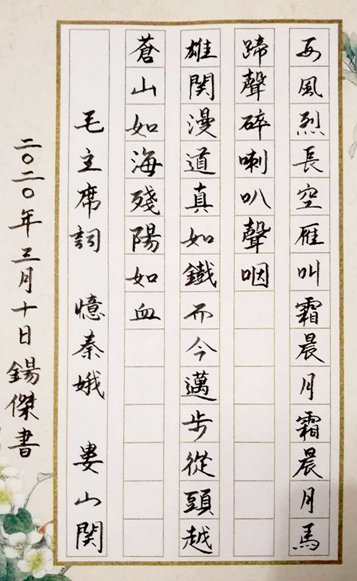 西風烈長空雁叫霜晨月霜晨月馬
蹄聲碎喇叭聲咽
雄関漫道真如鐵而今邁步從頭越
蒼山如海殘陽如血
毛主席詞 憶秦娥 婁山関
二〇二〇年三月十日錫傑書